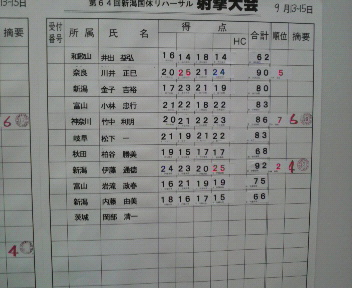 13-15日
第64回新潟国体リハーサル 射撃大会
9月13-15日
摘要 受付番号 所属 氏名 得点 HC 合計 順位 摘要
和歌山 井出 益弘 16 14 18 14 62
奈良 川井 正巳 20 25 21 24 90 5
新潟 金子 吉裕 17 23 21 19 80
富山 小林 忠行 21 22 18 22 83
6 神奈川 竹中 利明 20 21 22 23 86 7 6
岐阜 松下 一 21 19 21 22 83
秋田 柏谷 勝美 19 15 17 17 68
新潟 伊藤 通徳 24 23 20 25 92 2 4
富山 岩流 政春 16 21 19 19 75
新潟 内藤 由美 18 16 17 15 66
茨城 岡部 清一
4